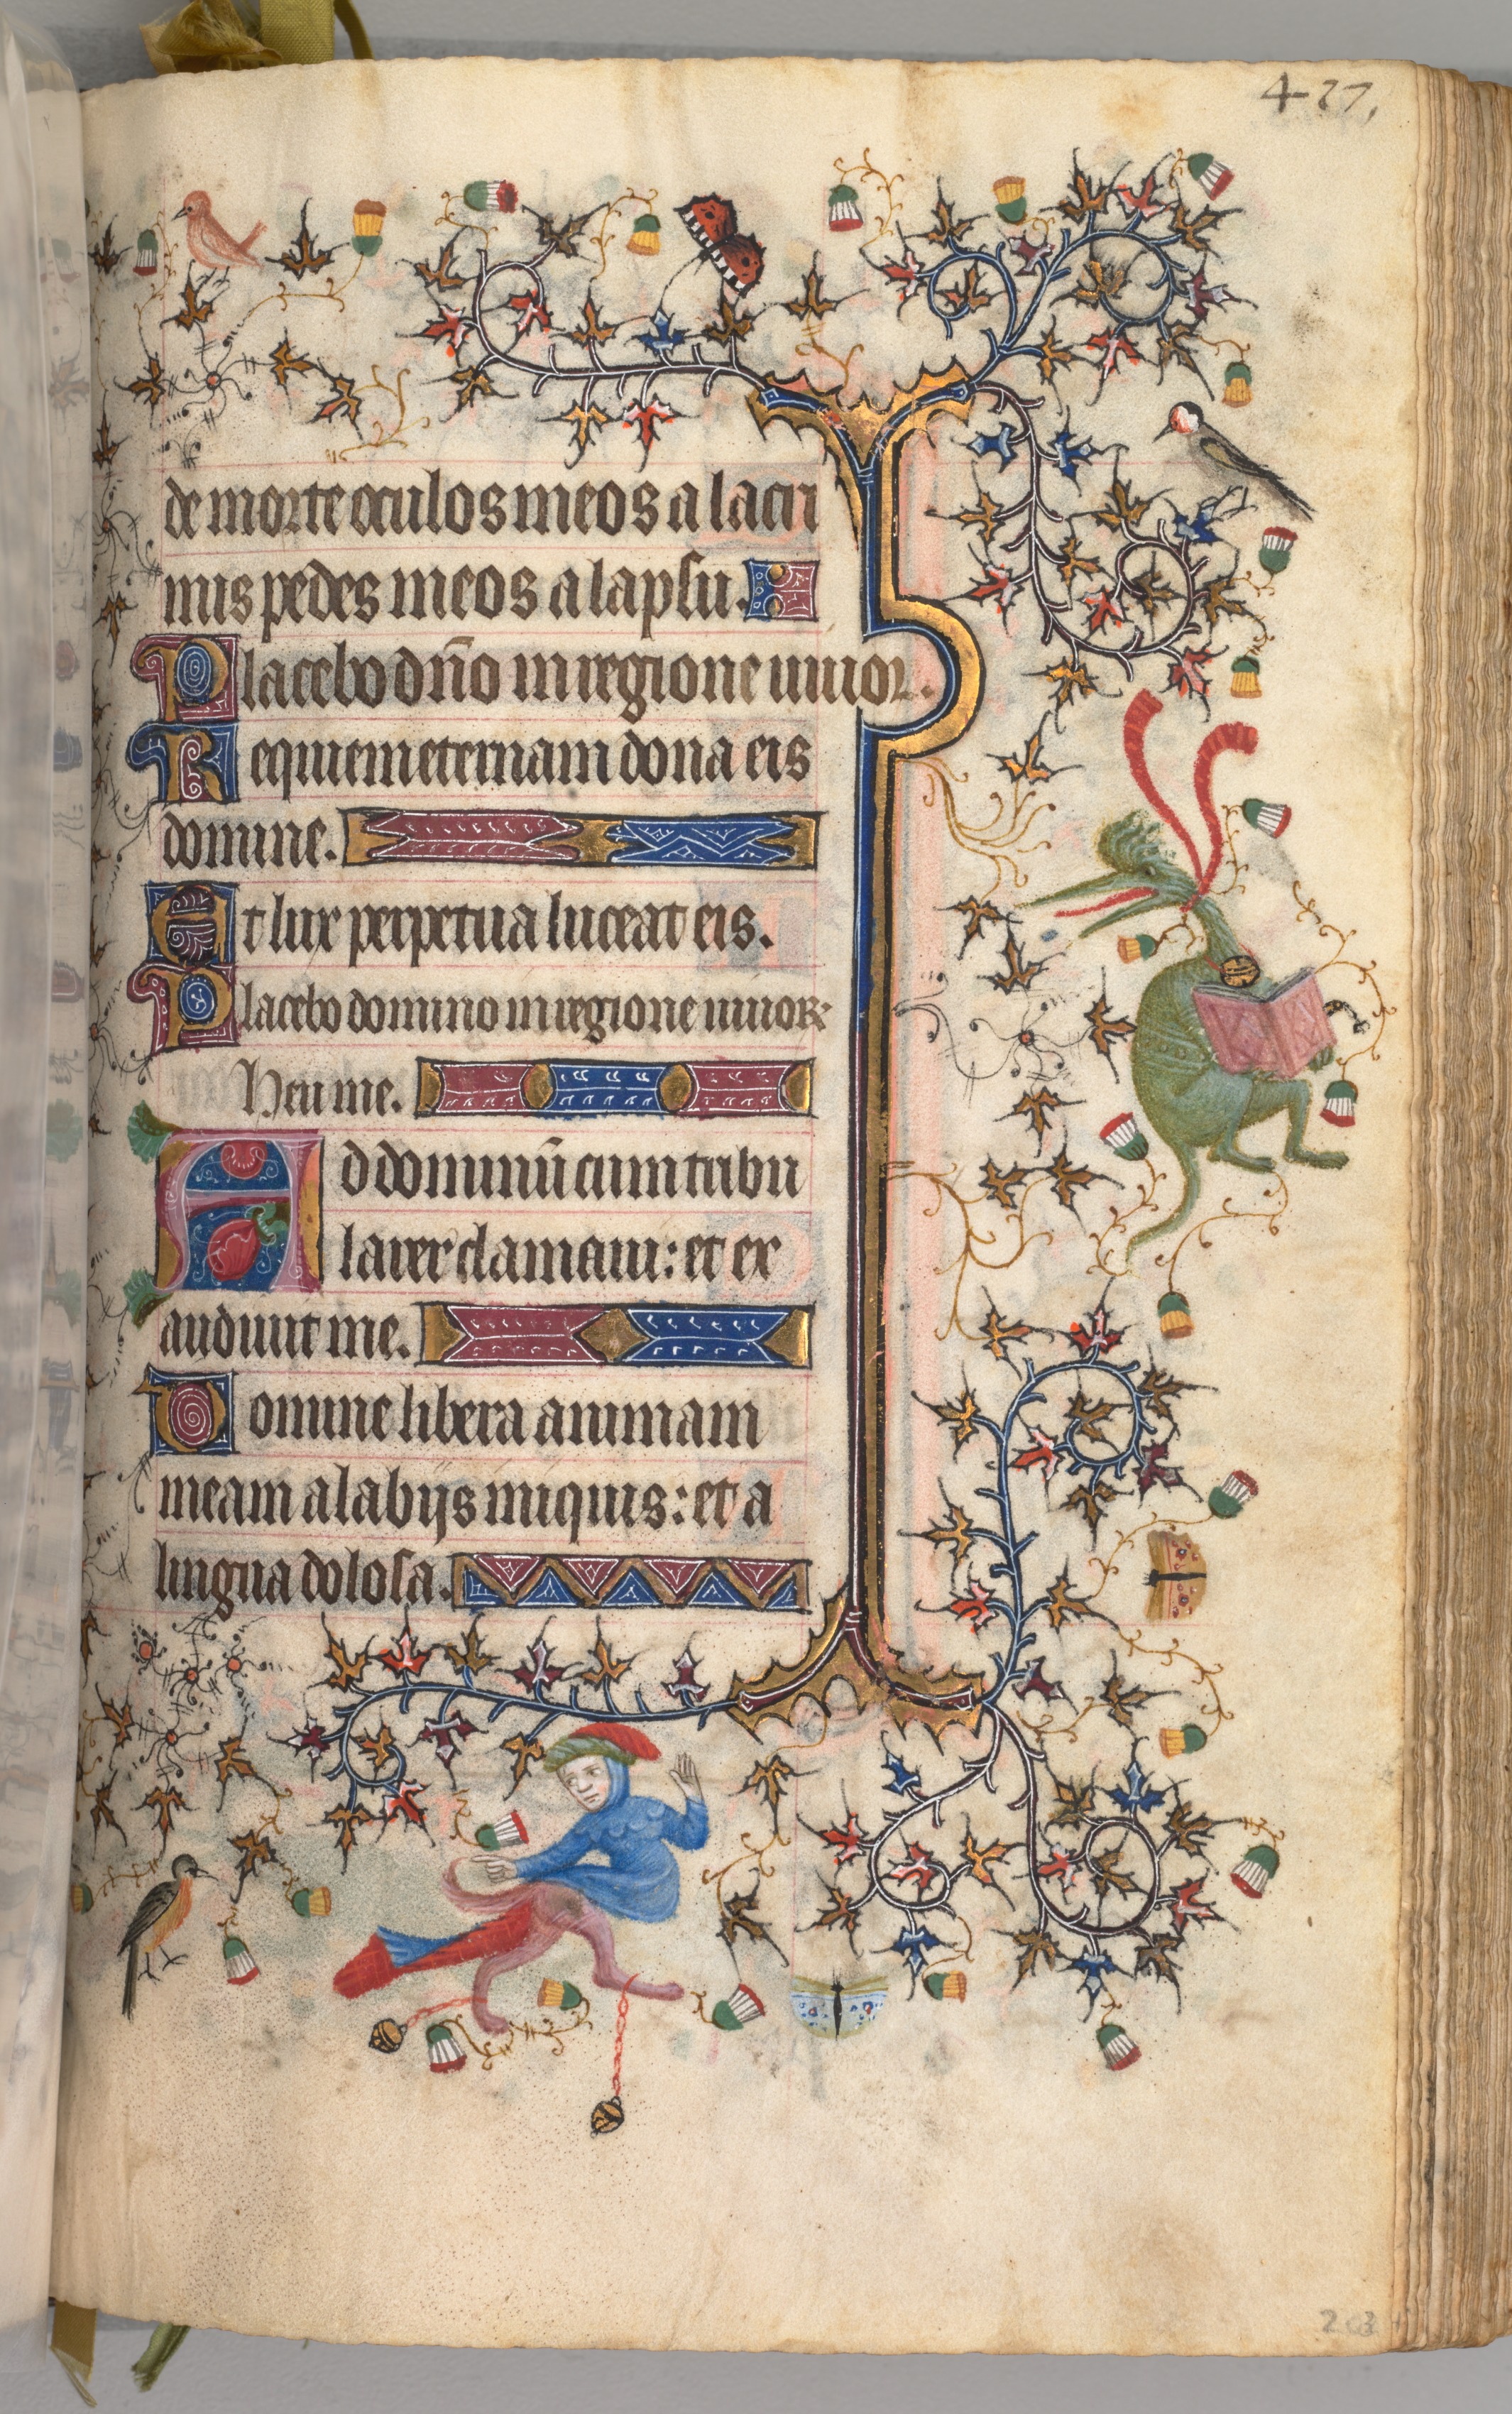 427,
de morte oculos meos a lacri
mis pedes meos a lapsu.
Placebo dño in regione uiuoꝝ.
Requiem eternam dona eis
domine.
Et lux perpetua luceat eis.
Placebo domino in regione uiuoꝝ
Heu me.
Ad dominũ cum tribu
larer clamaui: et ex
audiuit me.
Domine libera animam
meam a labijs iniquis: et a
lingua dolosa.